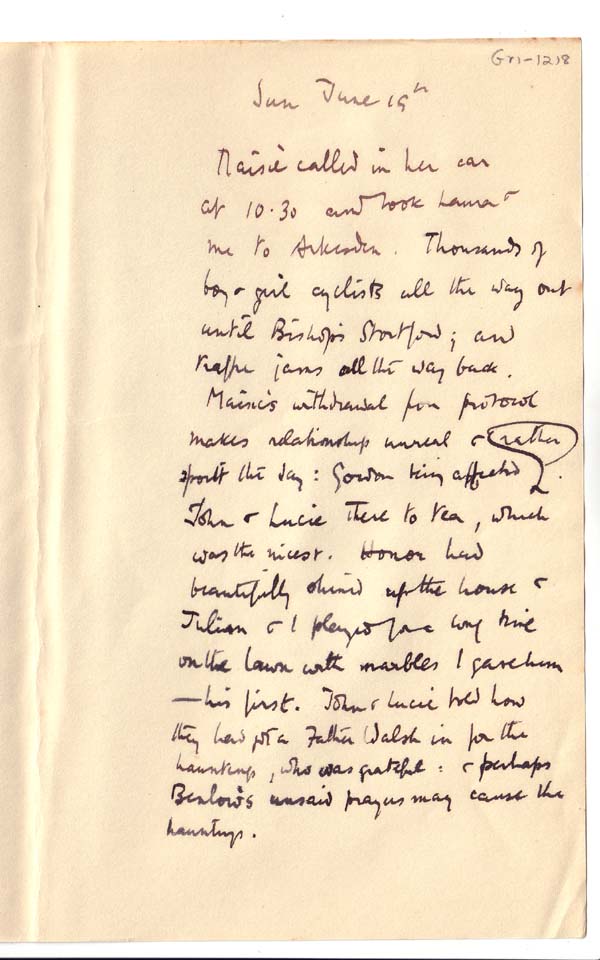 Gr1-1218
Sun June 19th
Maisie called in her car
at 10.30 and took Laura &
me to Arkesden. Thousands of
boy & girl cyclists all the way out
until Bishops Stortford; and
traffic jams all the way back.
Maisie's withdrawal from protocol
makes relationship unreal & rather
spoilt the day: Gordon being affected.
John & Lucie there to tea, which
was the nicest. Honor had
beautifully shined up the house &
Julian & I played for a long time
on the lawn with marbles I gave him
— his first. John & Lucie told how
they had got a Father Walsh in for the
hauntings, who was grateful: & perhaps
Benlow's unsaid prayers may cause the
hauntings.